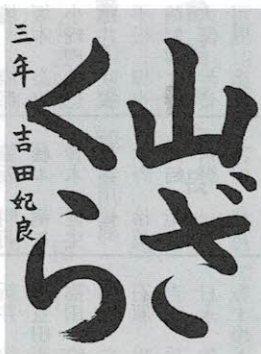 山ざ
くら
三年 吉田妃良